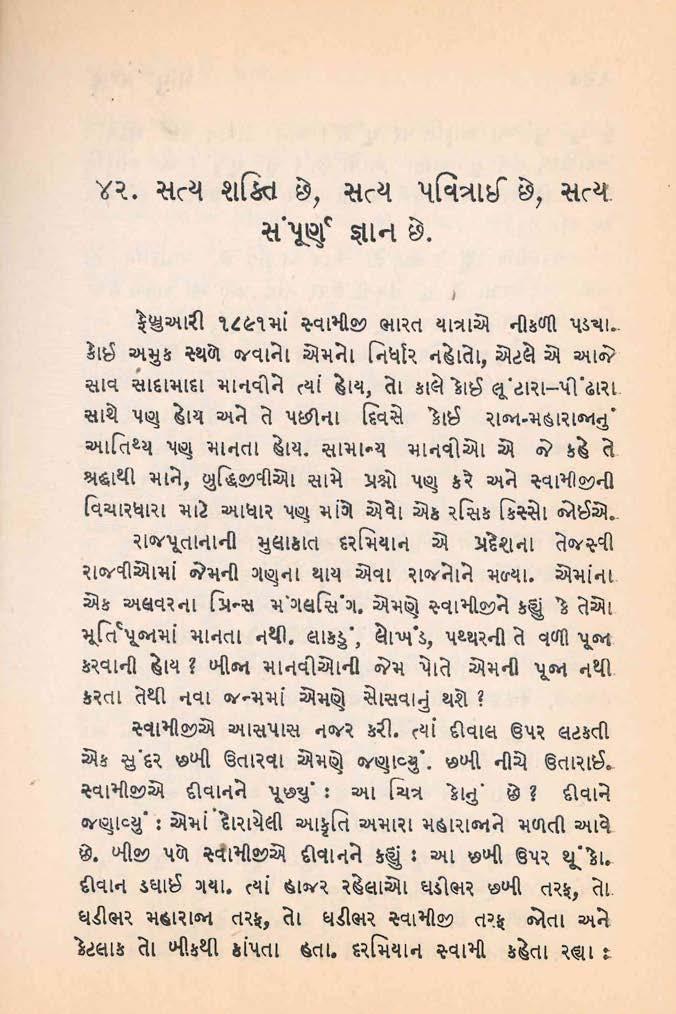 ૪૨. સત્ય શક્તિ છે, સત્ય પવિત્રાઈ છે, સત્ય
સંપૂર્ણ જ્ઞાન છે.
ફેબ્રુઆરી ૧૮૯૧માં સ્વામીજી ભારત યાત્રાએ નીકળી પડયા.
કોઈ અમુક સ્થળે જવાનો એમનો નિર્ધાર નહોતો, એટલે એ આજે
સાવ સાદામાદા માનવીને ત્યાં હોય, તો કાલે કોઈ લૂંટારા–પીંઢારા
સાથે પણ હોય અને તે પછીના દિવસે કોઈ રાજા-મહારાજાનું
આતિથ્ય પણ માનતા હોય. સામાન્ય માનવીઓ એ જે કહે તે
શ્રદ્ધાથી માને, બુદ્ધિજીવીઓ સામે પ્રશ્નો પણ કરે અને સ્વામીજીની
વિચારધારા માટે આધાર પણ માંગે એવો એક રસિક કિસ્સો જોઈએ.
રાજપૂતાનાની મુલાકાત દરમિયાન એ પ્રદેશના તેજસ્વી
રાજવીઓમાં જેમની ગણના થાય એવા રાજનોને મળ્યા. એમાંના
એક અલવરના પ્રિન્સ મંગલસિંગ. એમણે સ્વામીજીને કહ્યું કે તેઓ
મૂર્તિપૂજામાં માનતા નથી. લાકડું, લોખંડ, પથ્થરની તે વળી પૂજા
કરવાની હોય ? બીજા માનવીઓની જેમ પોતે એમની પૂજા નથી
કરતા તેથી નવા જન્મમાં એમણે સોસવાનું થશે ?
સ્વામીજીએ આસપાસ નજર કરી. ત્યાં દીવાલ ઉપર લટકતી
એક સુંદર છબી ઉતારવા એમણે જણાવ્યું. છબી નીચે ઉતારાઈ.
સ્વામીજીએ દીવાનને પૂછ્યું : આ ચિત્ર કોનું છે ? દીવાને
જણાવ્યું : એમાં દોરાયેલી આકૃતિ અમારા મહારાજાને મળતી આવે
છે. બીજી પળે સ્વામીજીએ દીવાનને કહ્યું : આ છબી ઉપર થૂંકો.
દીવાન ડઘાઈ ગયા. ત્યાં હાજર રહેલાઓ ઘડીભર છબી તરફ, તો
ઘડીભર મહારાજા તરફ, તો ઘડીભર સ્વામીજી તરફ જોતા અને
કેટલાક તો બીકથી કાંપતા હતા. દરમિયાન સ્વામી કહેતા રહ્યા :